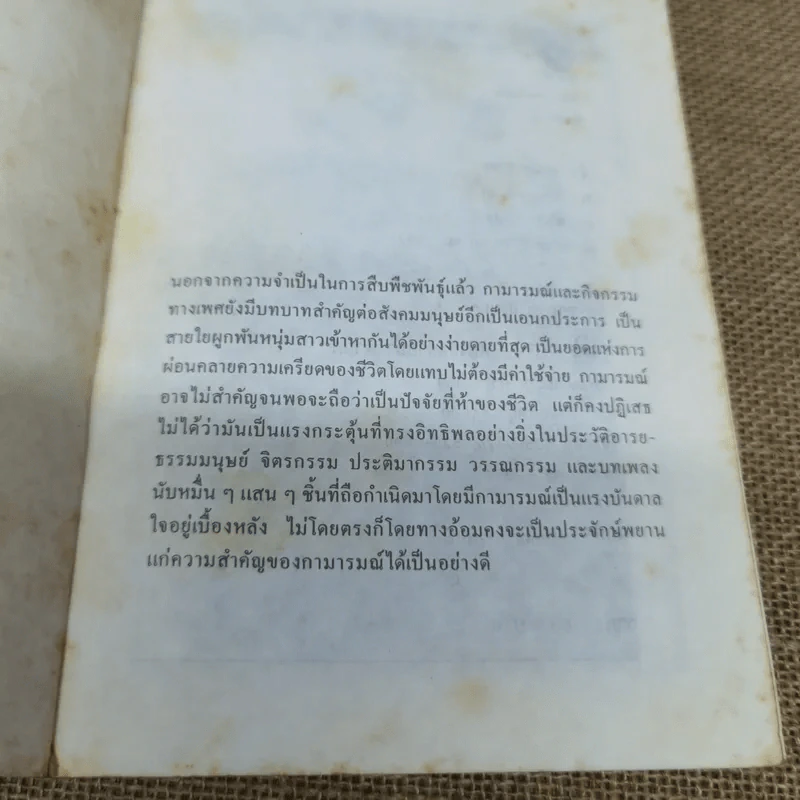 นอกจากความจำเป็นในการสืบพืชพันธุ์แล้ว กามารมณ์และกิจกรรม
ทางเพศยังมีบทบาทสำคัญต่อสังคมมนุษย์อีกเป็นเอนกประการ เป็น
สายใยผูกพันหนุ่มสาวเข้าหากันได้อย่างง่ายดายที่สุด เป็นยอดแห่งการ
ผ่อนคลายความเครียดของชีวิตโดยแทบไม่ต้องมีค่าใช้จ่าย กามารมณ์
อาจไม่สำคัญจนพอจะถือว่าเป็นปัจจัยที่ห้าของชีวิต แต่ก็คงปฏิเสธ
ไม่ได้ว่ามันเป็นแรงกระตุ้นที่ทรงอิทธิพลอย่างยิ่งในประวัติอารย-
ธรรมมนุษย์ จิตรกรรม ประติมากรรม วรรณกรรม และบทเพลง
นับหมื่น ๆ แสน ๆ ชิ้นที่ถือกำเนิดมาโดยมีกามารมณ์เป็นแรงบันดาล
ใจอยู่เบื้องหลัง ไม่โดยตรงก็โดยทางอ้อมคงจะเป็นประจักษ์พยาน
แก่ความสำคัญของกามารมณ์ได้เป็นอย่างดี